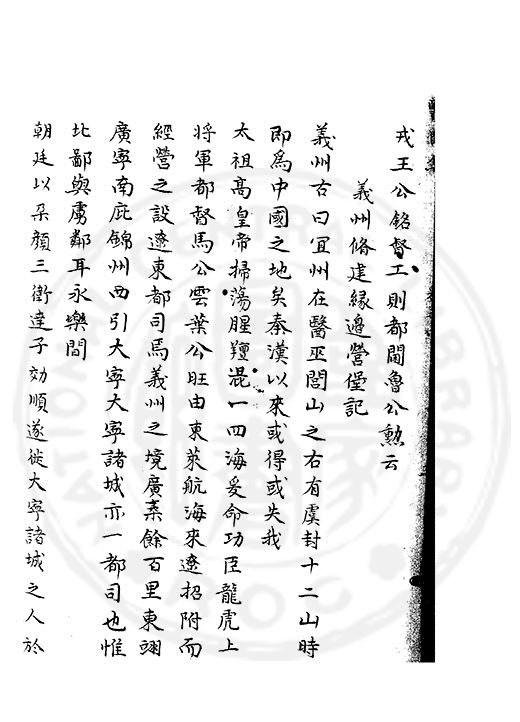 戎王公銘督工則都閫魯公勲云
義州脩建縁邊營堡記
義州古曰宜州在醫巫閭山之右有虞封十二山時
即爲中國之地矣秦漢以來或得或失我
太祖髙皇帝掃蕩腥羶混一四海爰命功臣龍虎上
將軍都督馬公雲葉公旺由東萊航海來遼招附而
經營之設遼東都司焉義州之境廣袤餘百里東翊
廣寧南庇錦州西引大寧大寧諸城亦一都司也惟
北鄙與虜鄰耳永樂間
朝廷以朶顔三衛達子効順遂徙大寧諸城之人於